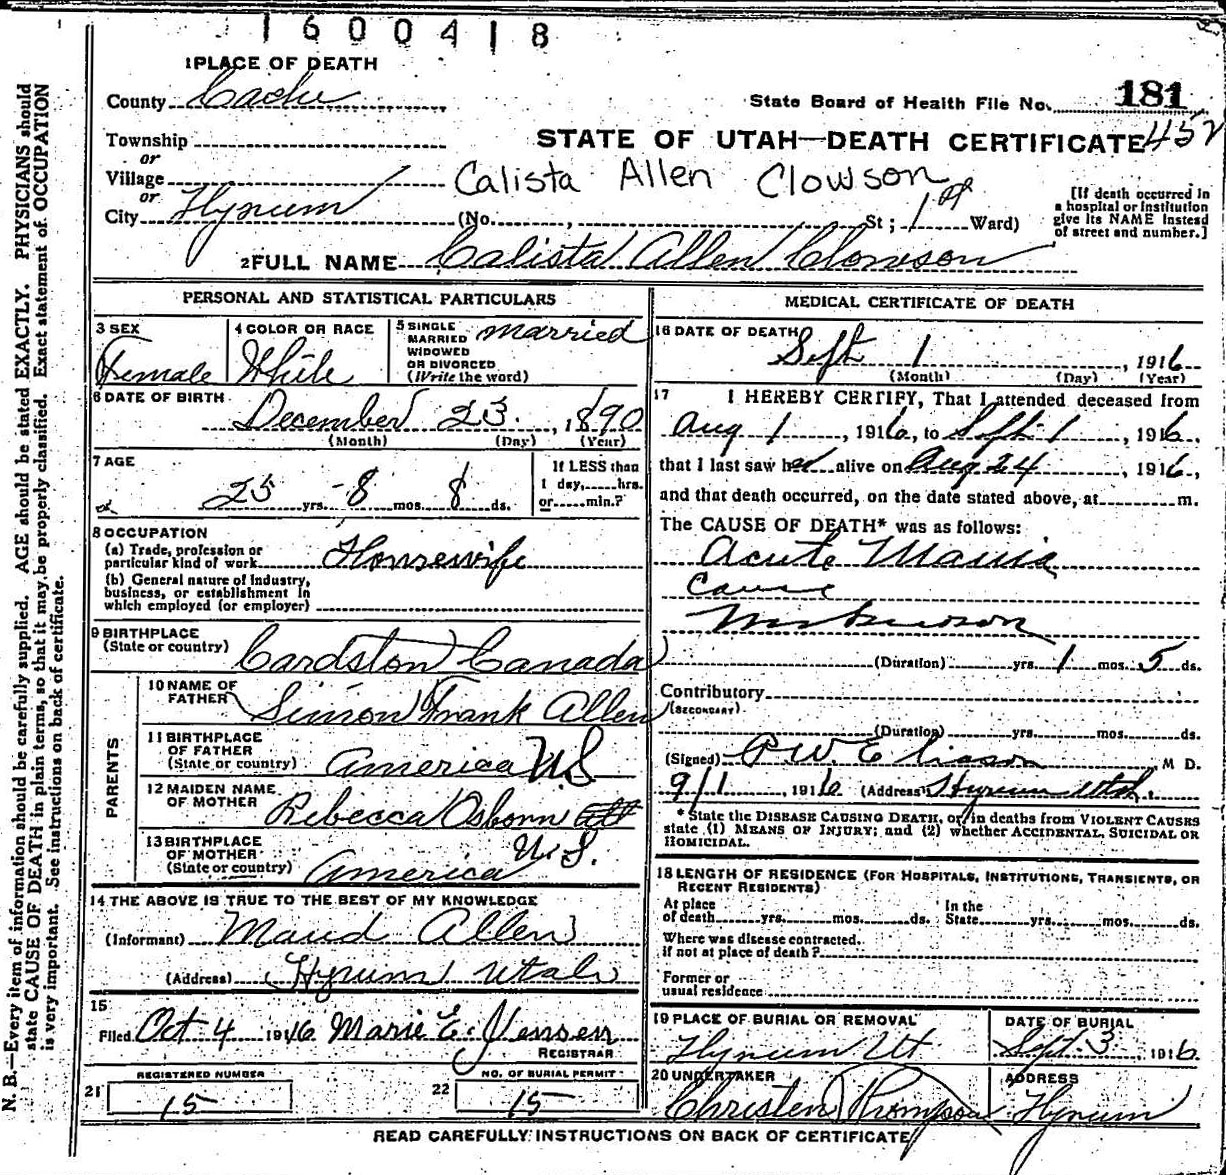 1600418
1 PLACE OF DEATH
County Cache
State Board of Health File No. 181
Township
or
STATE OF UTAH—DEATH CERTIFICATE 452
Village
or
Calista Allen Clowson
City Hyrum (No. , St; 1st Ward)
[If death occurred in a hospital or institution give its NAME instead of street and number.]
2 FULL NAME Calista Allen Clowson
PERSONAL AND STATISTICAL PARTICULARS
3 SEX Female
4 COLOR OR RACE White
5 SINGLE MARRIED WIDOWED OR DIVORCED (Write the word) Married
6 DATE OF BIRTH
December 23, 1890
(Month) (Day) (Year)
7 AGE
25 yrs. 8 mos. 8 ds.
If LESS than 1 day, hrs. or min.?
8 OCCUPATION
(a) Trade, profession or particular kind of work Housewife
(b) General nature of industry, business, or establishment in which employed (or employer)
9 BIRTHPLACE
(State or country) Cardston Canada
PARENTS
10 NAME OF FATHER Simon Frank Allen
11 BIRTHPLACE OF FATHER (State or country) America U.S
12 MAIDEN NAME OF MOTHER Rebecca Osborn
13 BIRTHPLACE OF MOTHER (State or country) America U.S.
14 THE ABOVE IS TRUE TO THE BEST OF MY KNOWLEDGE
(Informant) Maud Allen
(Address) Hyrum Utah
15
Filed Oct 4 1916 Marie E. Jensen
REGISTRAR
21 REGISTERED NUMBER 15
22 NO. OF BURIAL PERMIT 15
MEDICAL CERTIFICATE OF DEATH
16 DATE OF DEATH
Sept 1, 1916
(Month) (Day) (Year)
17 I HEREBY CERTIFY, That I attended deceased from
Aug 1, 1916, to Sept 1, 1916,
that I last saw her alive on Aug 24, 1916,
and that death occurred, on the date stated above, at m.
The CAUSE OF DEATH* was as follows:
Acute Mania
Cause
(Duration) yrs. 1 mos. 5 ds.
Contributory
(SECONDARY)
(Duration) yrs. mos. ds.
(Signed) P.W. Eliason, M D.
9/1, 1916 (Address) Hyrum Utah.
* State the DISEASE CAUSING DEATH, or, in deaths from VIOLENT CAUSES
state (1) MEANS OF INJURY; and (2) whether ACCIDENTAL, SUICIDAL OR
HOMICIDAL.
18 LENGTH OF RESIDENCE (FOR HOSPITALS, INSTITUTIONS, TRANSIENTS, OR
RECENT RESIDENTS)
At place of death yrs. mos. ds. In the State yrs. mos. ds.
Where was disease contracted,
if not at place of death?
Former or
usual residence
19 PLACE OF BURIAL OR REMOVAL Hyrum Ut
DATE OF BURIAL Sept. 3, 1916
20 UNDERTAKER Christen Thompson
ADDRESS Hyrum
READ CAREFULLY INSTRUCTIONS ON BACK OF CERTIFICATE
N. B.—Every item of information should be carefully supplied. AGE should be stated EXACTLY. PHYSICIANS should
state CAUSE OF DEATH in plain terms, so that it may be properly classified. Exact statement of OCCUPATION
is very important. See instructions on back of certificate.